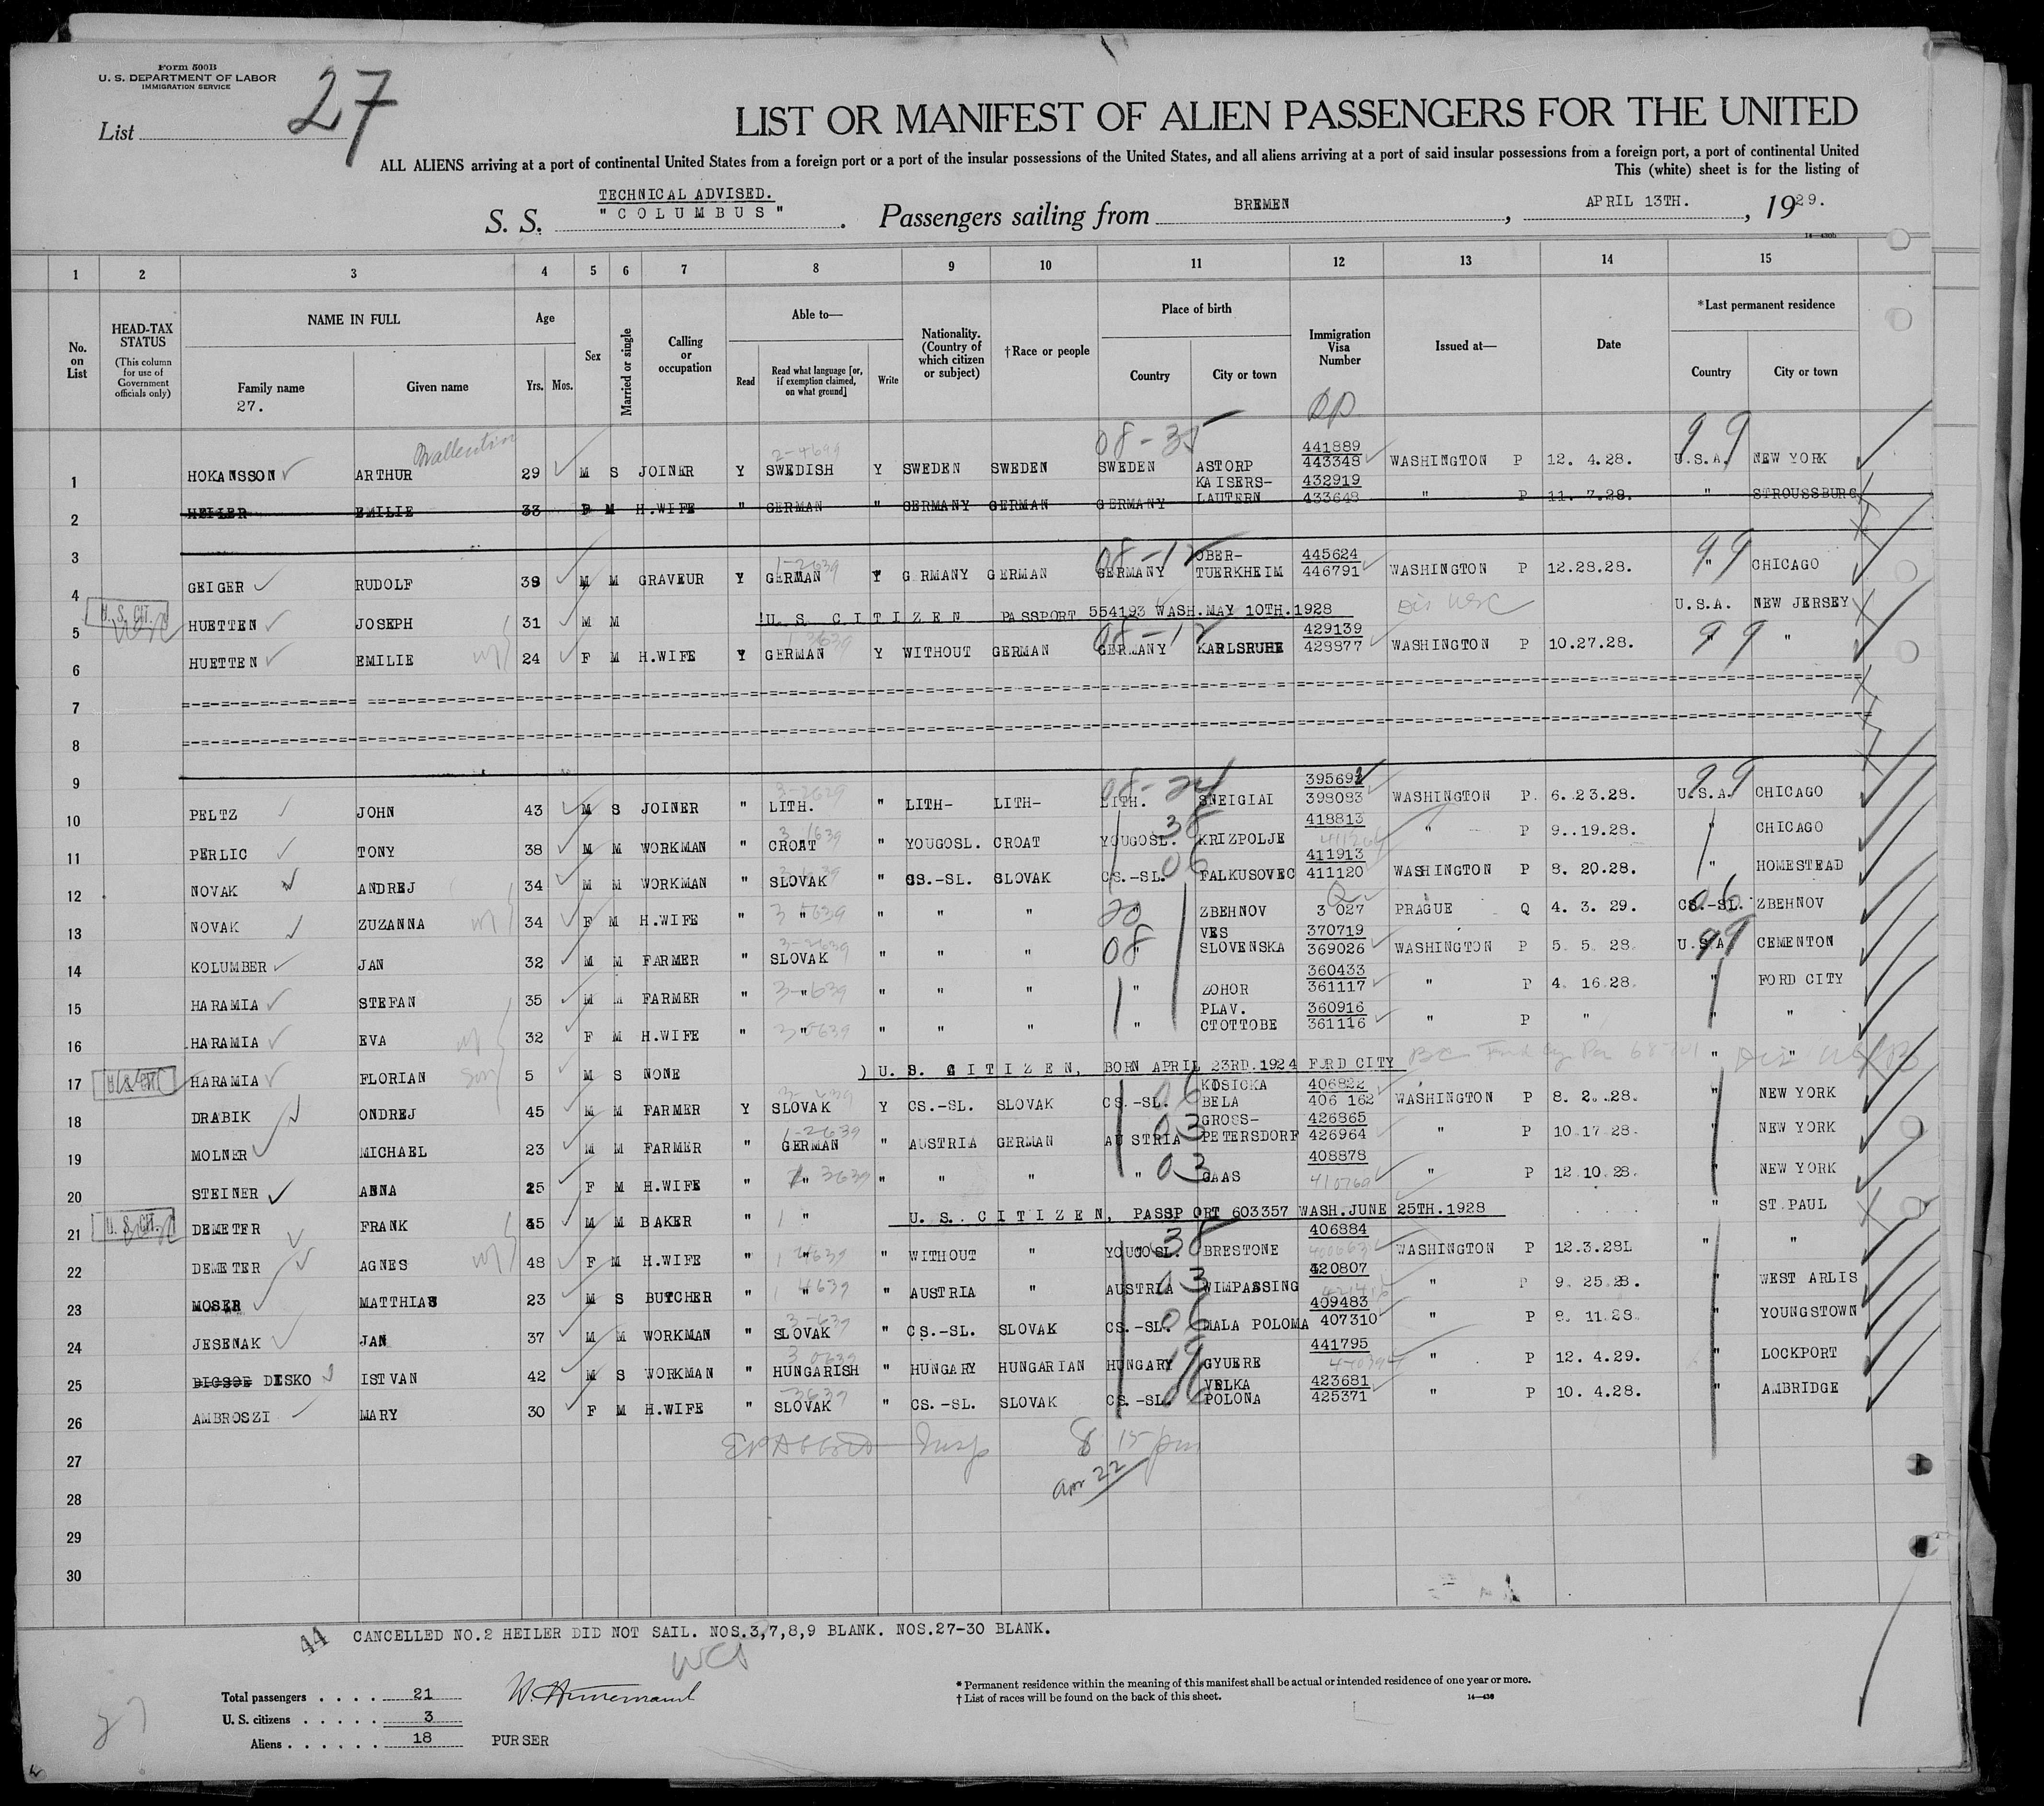 Form 500B
U. S. DEPARTMENT OF LABOR
IMMIGRATION SERVICE
List 27
LIST OR MANIFEST OF ALIEN PASSENGERS FOR THE UNITED
ALL ALIENS arriving at a port of continental United States from a foreign port or a port of the insular possessions of the United States, and all aliens arriving at a port of said insular possessions from a foreign port, a port of continental United
This (white) sheet is for the listing of
TECHNICAL ADVISED.
S. S. "COLUMBUS". Passengers sailing from BREMEN, APRIL 13TH., 1929.
14—430b
1 2 3 4 5 6 7 8 9 10 11 12 13 14 15
No. on List
HEAD-TAX STATUS
(This column for use of Government officials only)
NAME IN FULL
Family name
27.
Given name
Age
Yrs. Mos.
Sex
Married or single
Calling or occupation
Able to—
Read
Read what language [or, if exemption claimed, on what ground]
Write
Nationality. (Country of which citizen or subject)
†Race or people
Place of birth
Country City or town
Immigration Visa Number
Issued at—
Date
*Last permanent residence
Country City or town
08-35 99
441889
1 HOKANSSON ARTHUR 29 M S JOINER Y SWEDISH Y SWEDEN SWEDEN SWEDEN ASTORP 443348 WASHINGTON P 12. 4.28. U.S.A. NEW YORK
KAISERS- 432919
2 HEILER EMILIE 33 F M H.WIFE " GERMAN " GERMANY GERMAN GERMANY LAUTERN 433648 " P 11. 7.28. " STROUSSBURG
3
OBER- 445624
4 GEIGER RUDOLF 39 M M GRAVEUR Y GERMAN Y G RMANY GERMAN GERMANY TUERKHEIM 446791 WASHINGTON P 12.28.28. " CHICAGO
U. S. CIT.
5 HUETTEN JOSEPH 31 M M U.S. CITIZEN PASSPORT 554193 WASH.MAY 10TH.1928 U.S.A. NEW JERSEY
429139
6 HUETTEN EMILIE 24 F M H.WIFE Y GERMAN Y WITHOUT GERMAN GERMANY KARLSRUHE 428877 WASHINGTON P 10.27.28. " "
7
8
9
395692
10 PELTZ JOHN 43 M S JOINER " LITH. " LITH- LITH- LITH. SNEIGIAI 398083 WASHINGTON P. 6.23.28. U.S.A. CHICAGO
418813
11 PERLIC TONY 38 M M WORKMAN " CROAT " YOUGOSL. CROAT YOUGOSL. KRIZPOLJE " P 9..19.28. " CHICAGO
411913
12 NOVAK ANDREJ 34 M M WORKMAN " SLOVAK " CS.-SL. SLOVAK CS.-SL. FALKUSOVEC 411120 WASHINGTON P 8. 20.28. " HOMESTEAD
13 NOVAK ZUZANNA 34 F M H.WIFE " " " " " " ZBEHNOV 3 027 PRAGUE Q 4. 3. 29. CS.-SL. ZBEHNOV
VES 370719
14 KOLUMBER JAN 32 M M FARMER " SLOVAK " " " " SLOVENSKA 369026 WASHINGTON P 5. 5. 28. U.S.A. CEMENTON
360433
15 HARAMIA STEFAN 35 M M FARMER " " " " " " ZOHOR 361117 " P 4. 16.28. " FORD CITY
PLAV. 360916
16 HARAMIA EVA 32 F M H.WIFE " " " " " " CTOTTOBE 361116 " P " " "
17 HARAMIA FLORIAN 5 M S NONE ) U. S. CITIZEN, BORN APRIL 23RD.1924 FORD CITY " "
KOSICKA 406822
18 DRABIK ONDREJ 45 M M FARMER Y SLOVAK Y CS.-SL. SLOVAK CS.-SL. BELA 406 162 WASHINGTON P 8. 2..28. " NEW YORK
GROSS- 426865
19 MOLNER MICHAEL 23 M M FARMER " GERMAN " AUSTRIA GERMAN AUSTRIA PETERSDORF 426964 " P 10.17 28. " NEW YORK
408878
20 STEINER ANNA 25 F M H.WIFE " " " " " " GAAS 410769 " P 12.10.28. " NEW YORK
U. S. CIT.
21 DEMETER FRANK 45 M M BAKER " " U. S. CITIZEN, PASSPORT 603357 WASH.JUNE 25TH.1928 " ST.PAUL
406884
22 DEMETER AGNES 48 F M H.WIFE " " " WITHOUT " YOUGOSL. BRESTONE WASHINGTON P 12.3.28L " "
420807
23 MOSER MATTHIAS 23 M S BUTCHER " " " AUSTRIA " AUSTRIA WIMPASSING " P 9. 25.28. " WEST ARLIS
409483
24 JESENAK JAN 37 M M WORKMAN " SLOVAK " CS.-SL. SLOVAK CS.-SL. MALA POLOMA 407310 " P 8. 11.28. " YOUNGSTOWN
441795
25 DISKO ISTVAN 42 M S WORKMAN " HUNGARISH " HUNGARY HUNGARIAN HUNGARY GYUERE " P 12. 4.29. " LOCKPORT
VELKA 423681
26 AMBROSZI MARY 30 F M H.WIFE " SLOVAK " CS.-SL. SLOVAK CS.-SL. POLONA 425371 " P 10. 4.28. " AMBRIDGE
8 15 pm
27
Apr 22
28
29
30
44 CANCELLED NO.2 HEILER DID NOT SAIL. NOS.3,7,8,9 BLANK. NOS.27-30 BLANK.
Total passengers . . . . 21
U. S. citizens . . . . . 3
Aliens . . . . . . 18
PURSER
* Permanent residence within the meaning of this manifest shall be actual or intended residence of one year or more.
† List of races will be found on the back of this sheet.
14—430